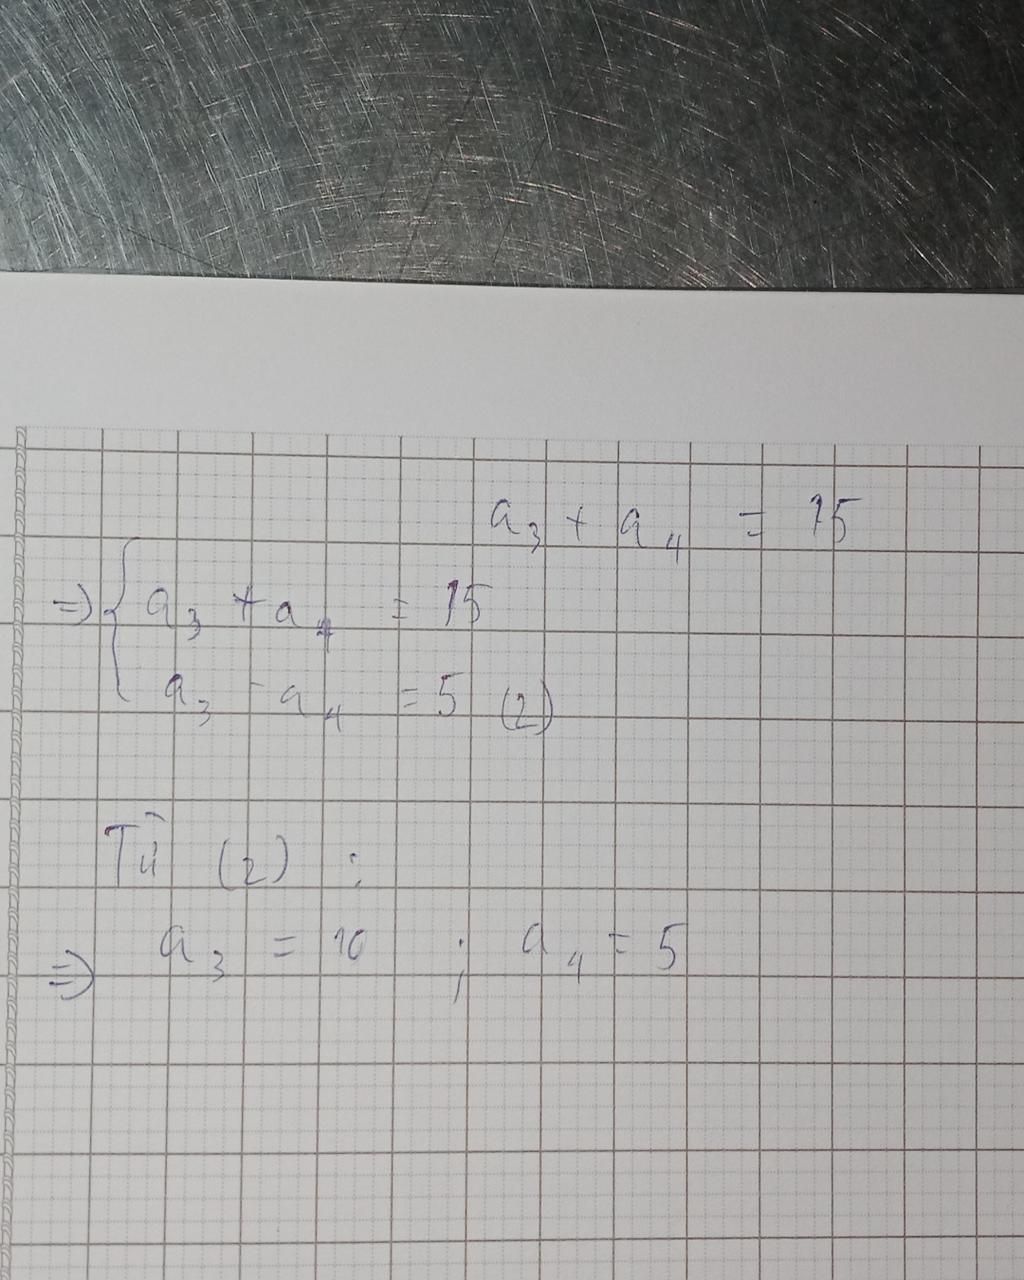 a₃ + a₄ = 15
=> { a₃ + a₄ = 15
a₃ - a₄ = 5 (2)
Từ (2) :
=> a₃ = 10 ; a₄ = 5